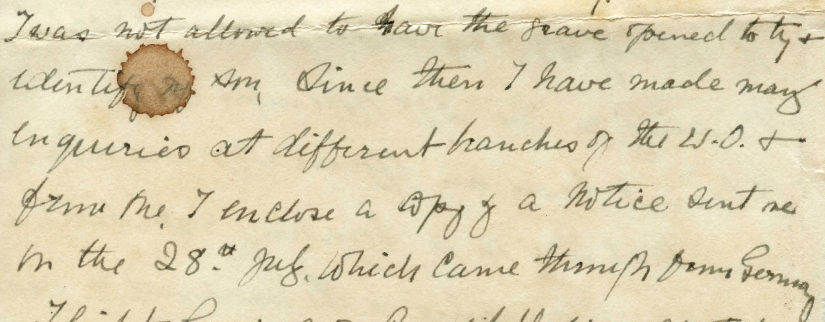 I was not allowed to have the grave opened to try &
identify my son, Since then I have made many
enquiries at different branches of the W.O. &
from the. I enclose a copy of a Notice sent me
on the 28th July. Which came through from Germany